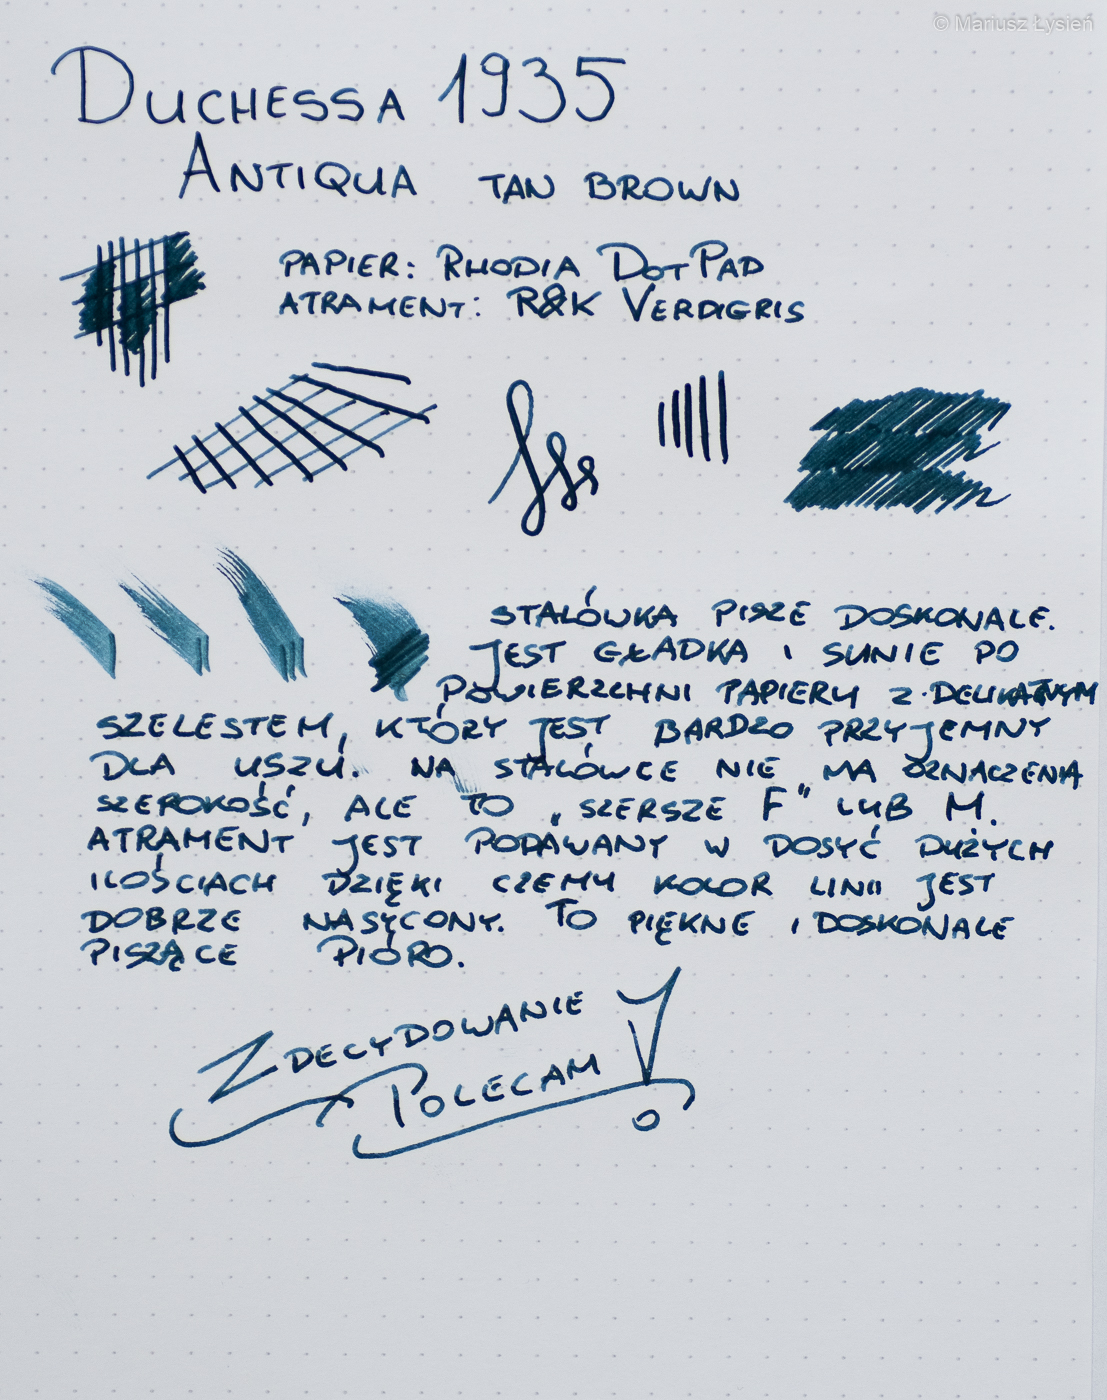 © Mariusz Łysień
DUCHESSA 1935
ANTIQUA TAN BROWN
PAPIER: RHODIA DOTPAD
ATRAMENT: R&K VERDIGRIS
STALÓWKA PISZE DOSKONALE.
JEST GŁADKA I SUNIE PO
POWIERZCHNI PAPIERU Z DELIKATNYM
SZELESTEM, KTÓRY JEST BARDZO PRZYJEMNY
DLA USZU. NA STALÓWCE NIE MA OZNACZENIA
SZEROKOŚĆ, ALE TO „SZERSZE F” LUB M.
ATRAMENT JEST PODAWANY W DOSYĆ DUŻYCH
ILOŚCIACH DZIĘKI CZEMU KOLOR LINII JEST
DOBRZE NASYCONY. TO PIĘKNE I DOSKONALE
PISZĄCE PIÓRO.
ZDECYDOWANIE
POLECAM!